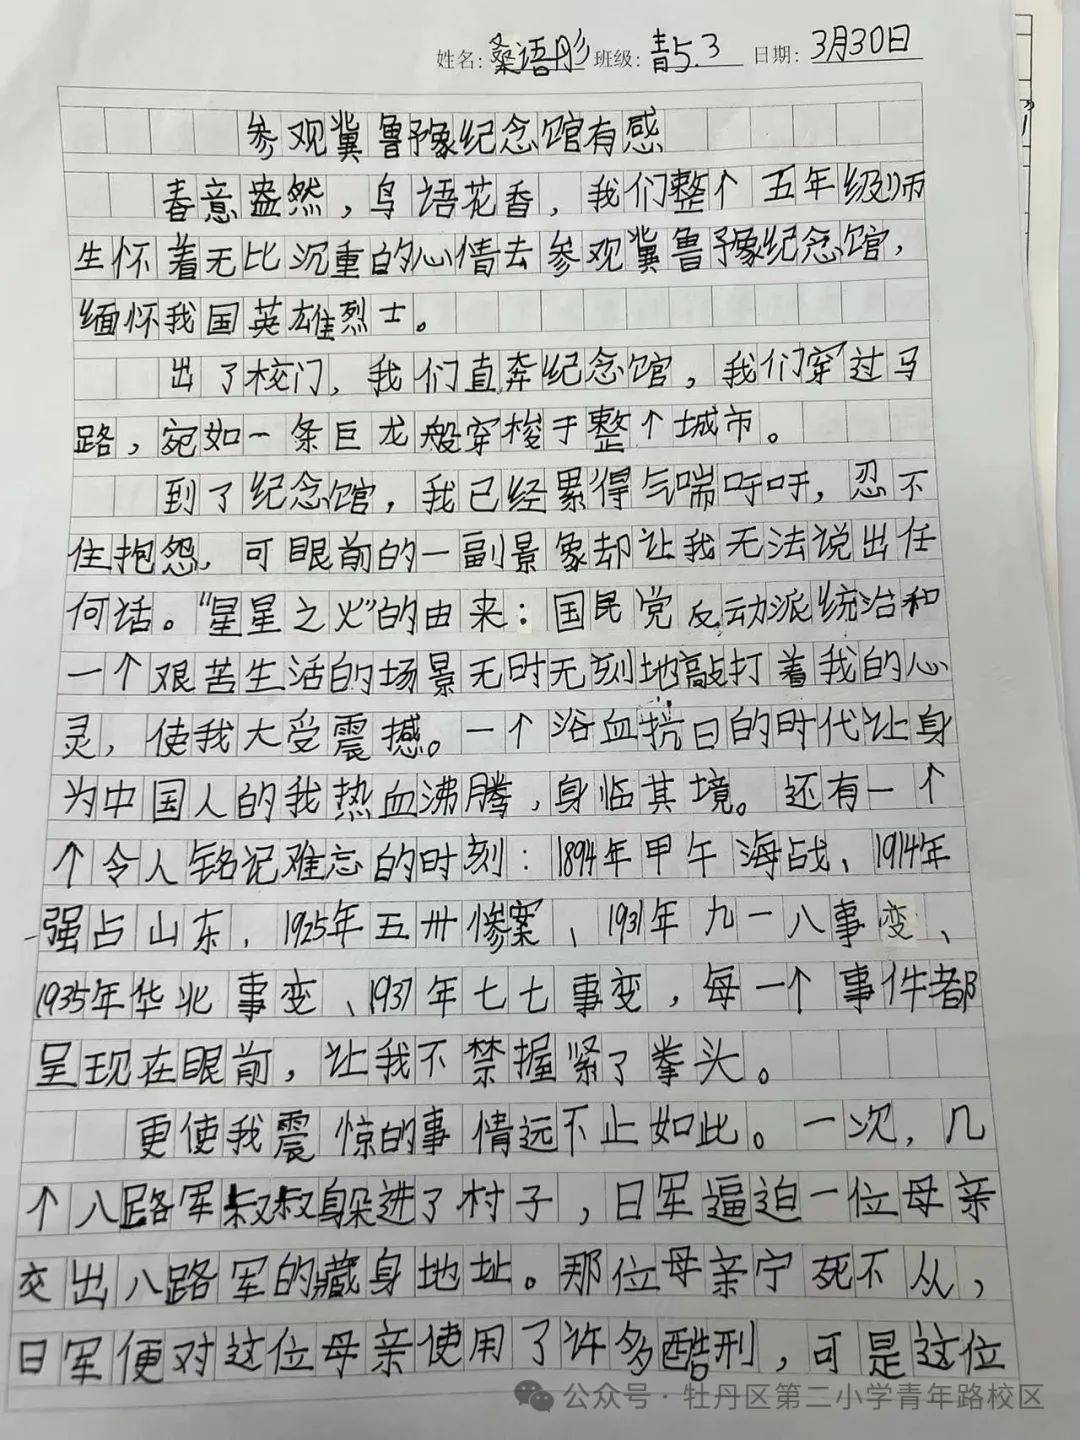 姓名:桑语彤 班级:青5.3 日期:3月30日
参观冀鲁豫纪念馆有感
春意盎然，鸟语花香，我们整个五年级师
生怀着无比沉重的心情去参观冀鲁豫纪念馆，
缅怀我国英雄烈士。
出了校门，我们直奔纪念馆，我们穿过马
路，宛如一条巨龙般穿梭于整个城市。
到了纪念馆，我已经累得气喘吁吁，忍不
住抱怨，可眼前的一副景象却让我无法说出任
何话。“星星之火”的由来：国民党反动派统治和
一个艰苦生活的场景无时无刻地敲打着我的心
灵，使我大受震撼。一个浴血抗日的时代让身
为中国人的我热血沸腾，身临其境。还有一个
个令人铭记难忘的时刻：1894年甲午海战、1914年
强占山东、1925年五卅惨案、1931年九一八事变、
1935年华北事变、1937年七七事变，每一个事件都
呈现在眼前，让我不禁握紧了拳头。
更使我震惊的事情远不止如此。一次，几
个八路军叔叔躲进了村子，日军逼迫一位母亲
交出八路军的藏身地址。那位母亲宁死不从，
日军便对这位母亲使用了许多酷刑，可是这位
公众号·牡丹区第二小学青年路校区